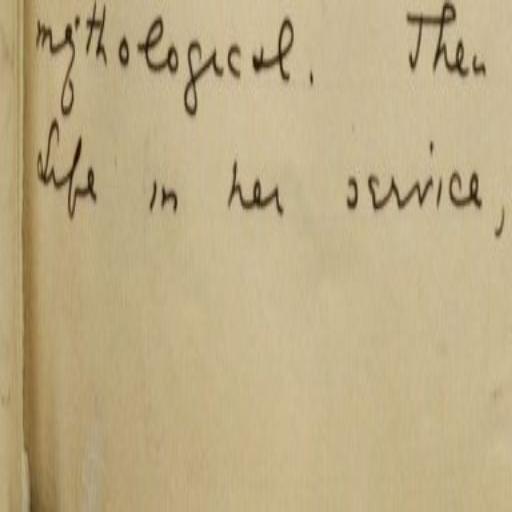 mythological. Then
life in her service,